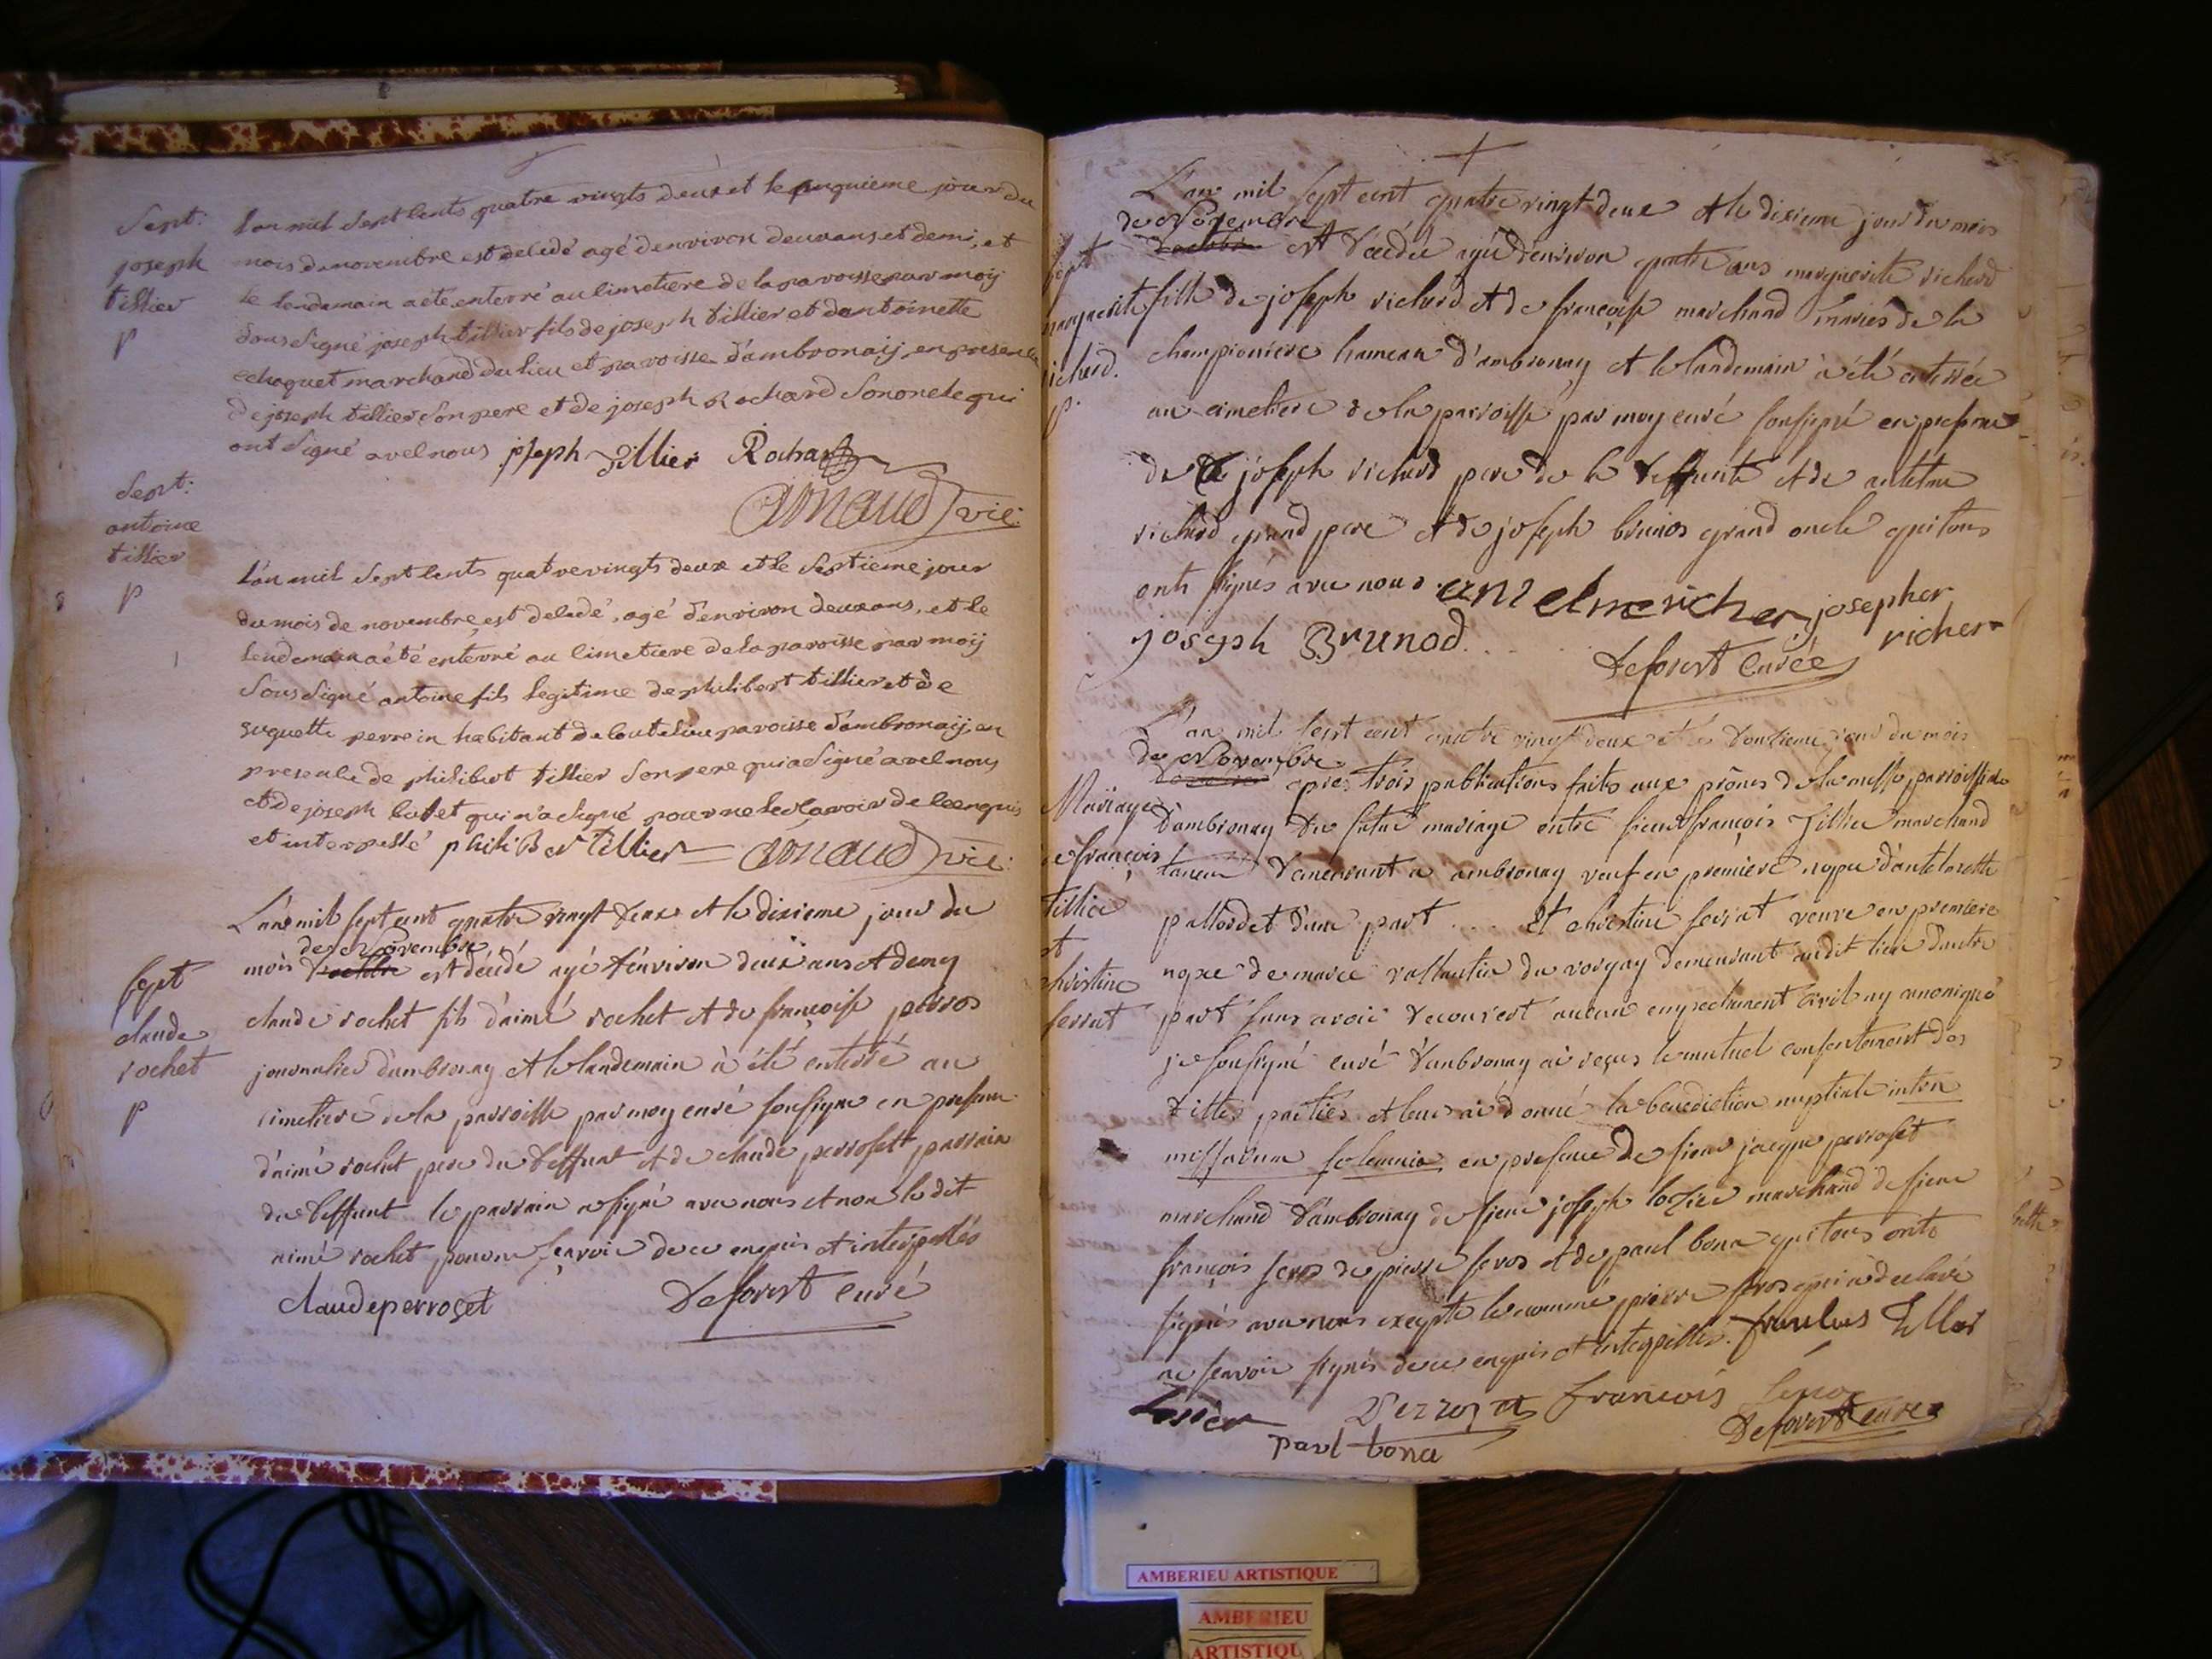 Sept:
joseph
tillier
p
Lan mil sept cents quatre vingts deux et le cinquieme jour du
mois de novembre est decedé agé denviron deux ans et demi, et
le lendemain a été enterré au cimetiere de la paroisse par moij
sous signé joseph tillier fils de joseph tillier et dantoinette
echoquet marchand du lieu et paroisse d'ambronaij, en presence
de joseph tillier son pere et de joseph Rochard son oncle qui
ont signé avec nous joseph Tillier Rochard
Arnaud vic:
Sept:
antoine
tillier
p
L'an mil sept cents quatre vingts deux et le septieme jour
du mois de novembre, est decedé, agé d'environ deux ans, et le
lendemain a été enterré au cimetiere de la paroisse par moij
sous signé antoine fils legitime de philibert tillier et de
huguette perrein habitant de paroisse d'ambronaij, en
presence de philibert tillier son pere qui a signé avec nous
et de joseph cuset qui n'a signé pour ne le scavoir de ce enquis
et interpellé philiBer tillier Arnaud vic:
sept
claude
rochet
p
L'an mil sept cent quatre vingt deux et le dixieme jour du
de Novembre
mois d'octobre est décédé agé d'environ deux ans et demy
claude rochet fils d'aimé rochet et de françoise perros
journalier d'ambronay et le landemain à été enterré au
cimetiere de la parroisse par moy curé sousigné en presence
d'aimé rochet pere du deffunt et de claude perroset parrain
du deffunt le parrain a signé avec nous et non le dit
aimé rochet pour ne sçavoir de ce enquis et interpellés
claude perroset Deforest curé
L'an mil sept cent quatre vingt deux et le dixieme jour du mois
de Novembre
d'octobre est décédée agée d'environ quatre ans marguerite richerd
fille de joseph richerd et de françoise marchand mariés de la
championiere hameau d'ambronay et le landemain à été enterrée
au cimetiere de la parroisse par moy curé sousigné en presence
de joseph richerd pere de la deffunte et de antelme
richerd grand pere et de joseph brunos grand oncle qui tous
onts signés avec nous. anselme richer josepher
joseph Brunod richer
Deforest curé
sept
marguerite
richerd.
p.
L'an mil sept cent quatre vingt deux et le douzieme jour du mois
de Novembre
d'octobre apres trois publications faits aux prônes de la messe parroissiale
d'ambronay du futur mariage entre sieur françois Tillier marchand
taneur demeurant a ambronay veuf en premiere nopce d'antelmette
pallordet d'une part .... et christine serrat veuve en premiere
nopce de marce vallantin du vorgay demeurant audit lieu d'autre
part sans avoir decouvert aucun empechement civil ny canonique
je sousigné curé d'ambronay ai reçus le mutuel consentement des
dittes parties et leur ai donné la benediction nuptiale intra
missarum solemnia, en presence de sieur jacque perroset
marchand d'ambronay de sieur joseph lozier marchand de sieur
françois seros de pierre seros et de paul bona qui tous onts
signés avec nous excepte le nommé pierre seros qui a declaré
ne sçavoir signés de ce enquis et interpellés. Tillier
Perroset françois seros
paul bona Deforest curé
Mariage
de françois
tillier
et
christine
serrat
AMBERIEU ARTISTIQUE
AMBERIEU
ARTISTIQU